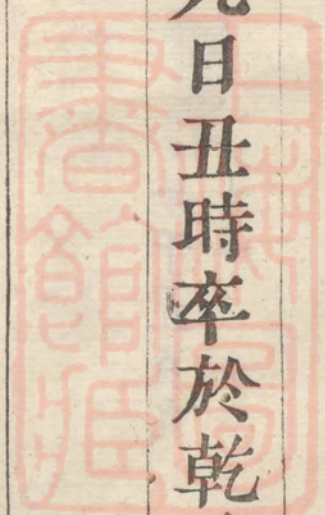 日丑時卒於乾